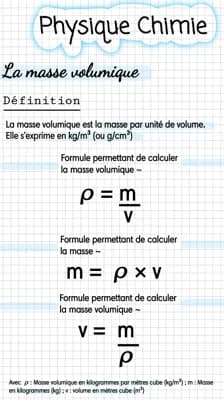 Physique Chimie
La masse volumique
Définition
La masse volumique est la masse par unité de volume.
Elle s'exprime en kg/m³ (ou g/cm³)
Formule permettant de calculer
la masse volumique ~
ρ = m
v
Formule permettant de calculer
la masse ~
m = ρ x v
Formule permettant de calculer
la masse volumique ~
v = m
ρ
Avec ρ : Masse volumique en kilogrammes par mètres cube (kg/m³) ; m : Masse
en kilogrammes (kg) ; v : volume en mètres cube (m³)